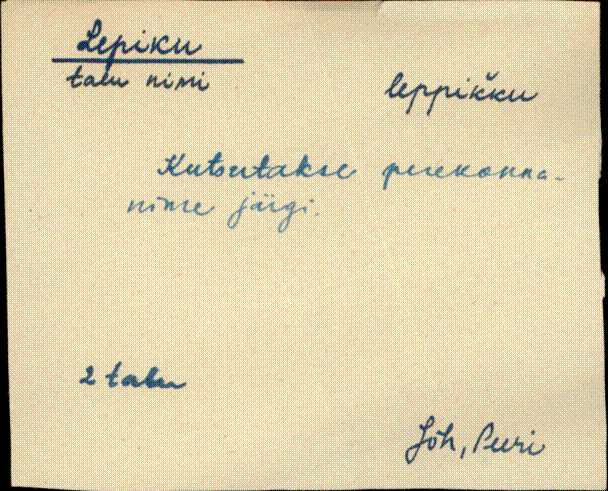 Lepiku
talu nimi
leppikku
Kutsutakse perekonna-
nime järgi.
2 talu
Jõh, Peeri